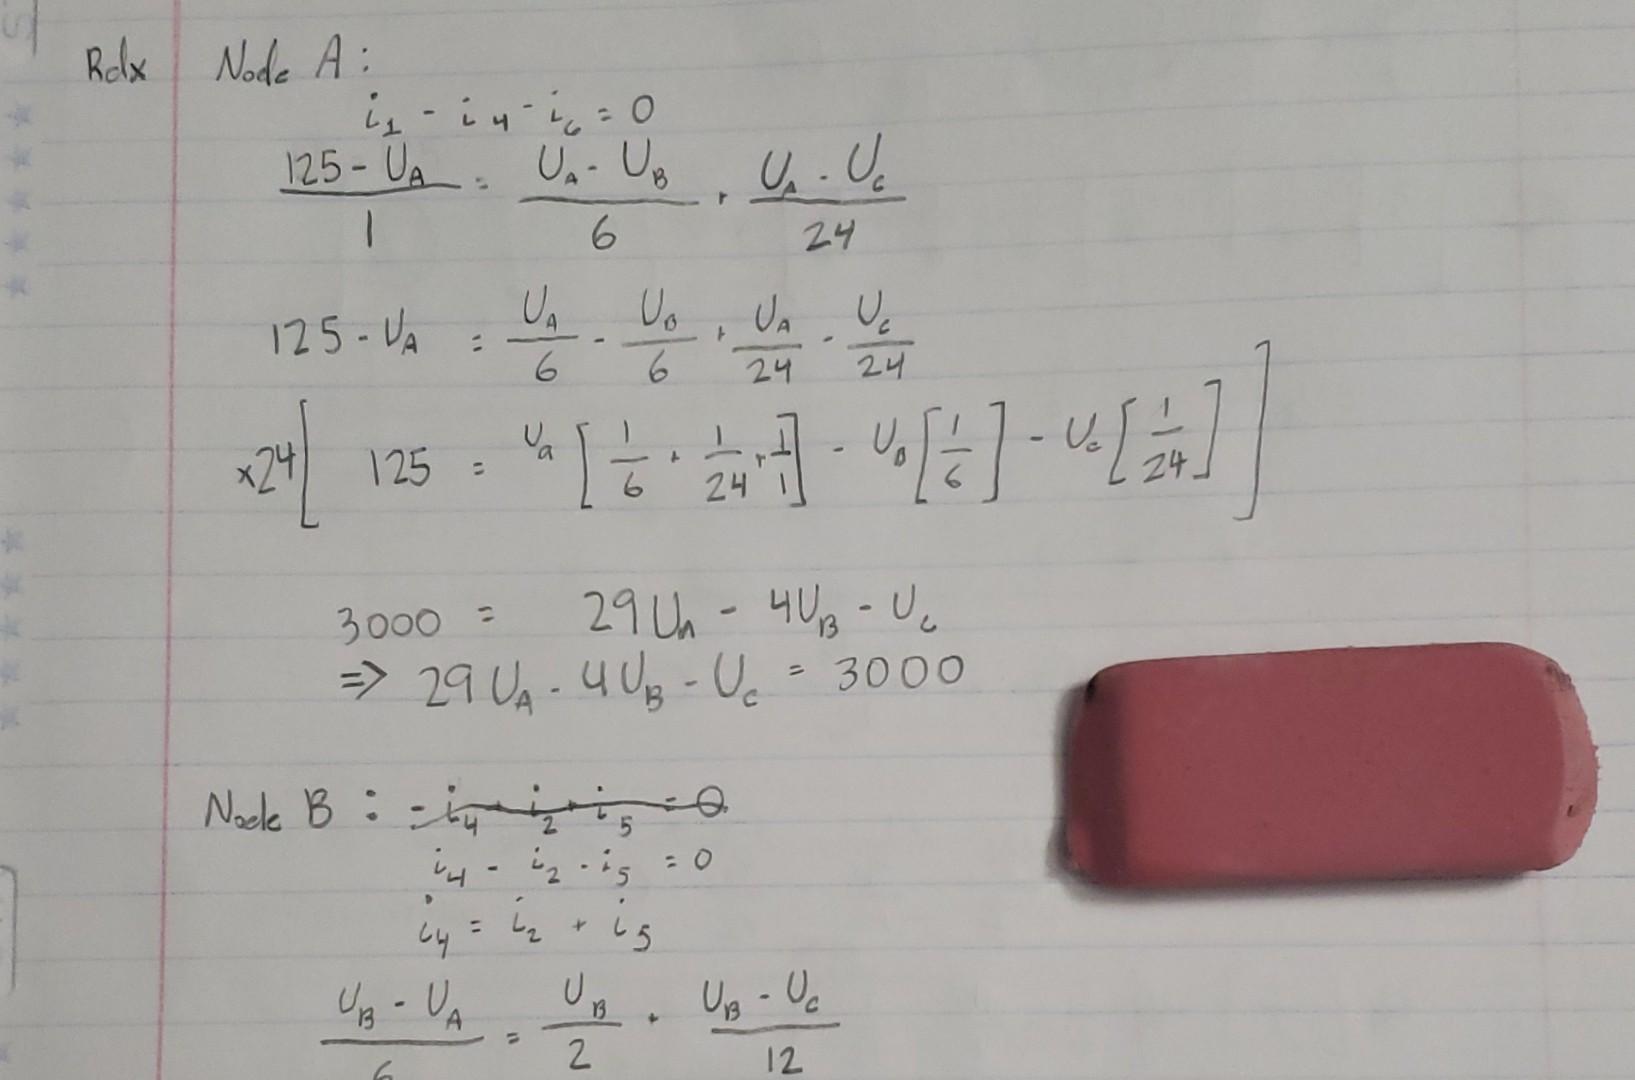 Rdx Node A:
i₁ - i₄ - i₆ = 0
(125 - U_A)/1 = (U_A - U_B)/6 + (U_A - U_C)/24
125 - U_A = U_A/6 - U_B/6 + U_A/24 - U_C/24
×24[ 125 = U_a [1/6 + 1/24 + 1/1] - U_B [1/6] - U_C [1/24] ]
3000 = 29U_A - 4U_B - U_C
⇒ 29U_A - 4U_B - U_C = 3000
Node B : - i₄ + i₂ + i₅ = 0
i₄ - i₂ - i₅ = 0
i₄ = i₂ + i₅
(U_B - U_A)/6 = U_B/2 + (U_B - U_C)/12